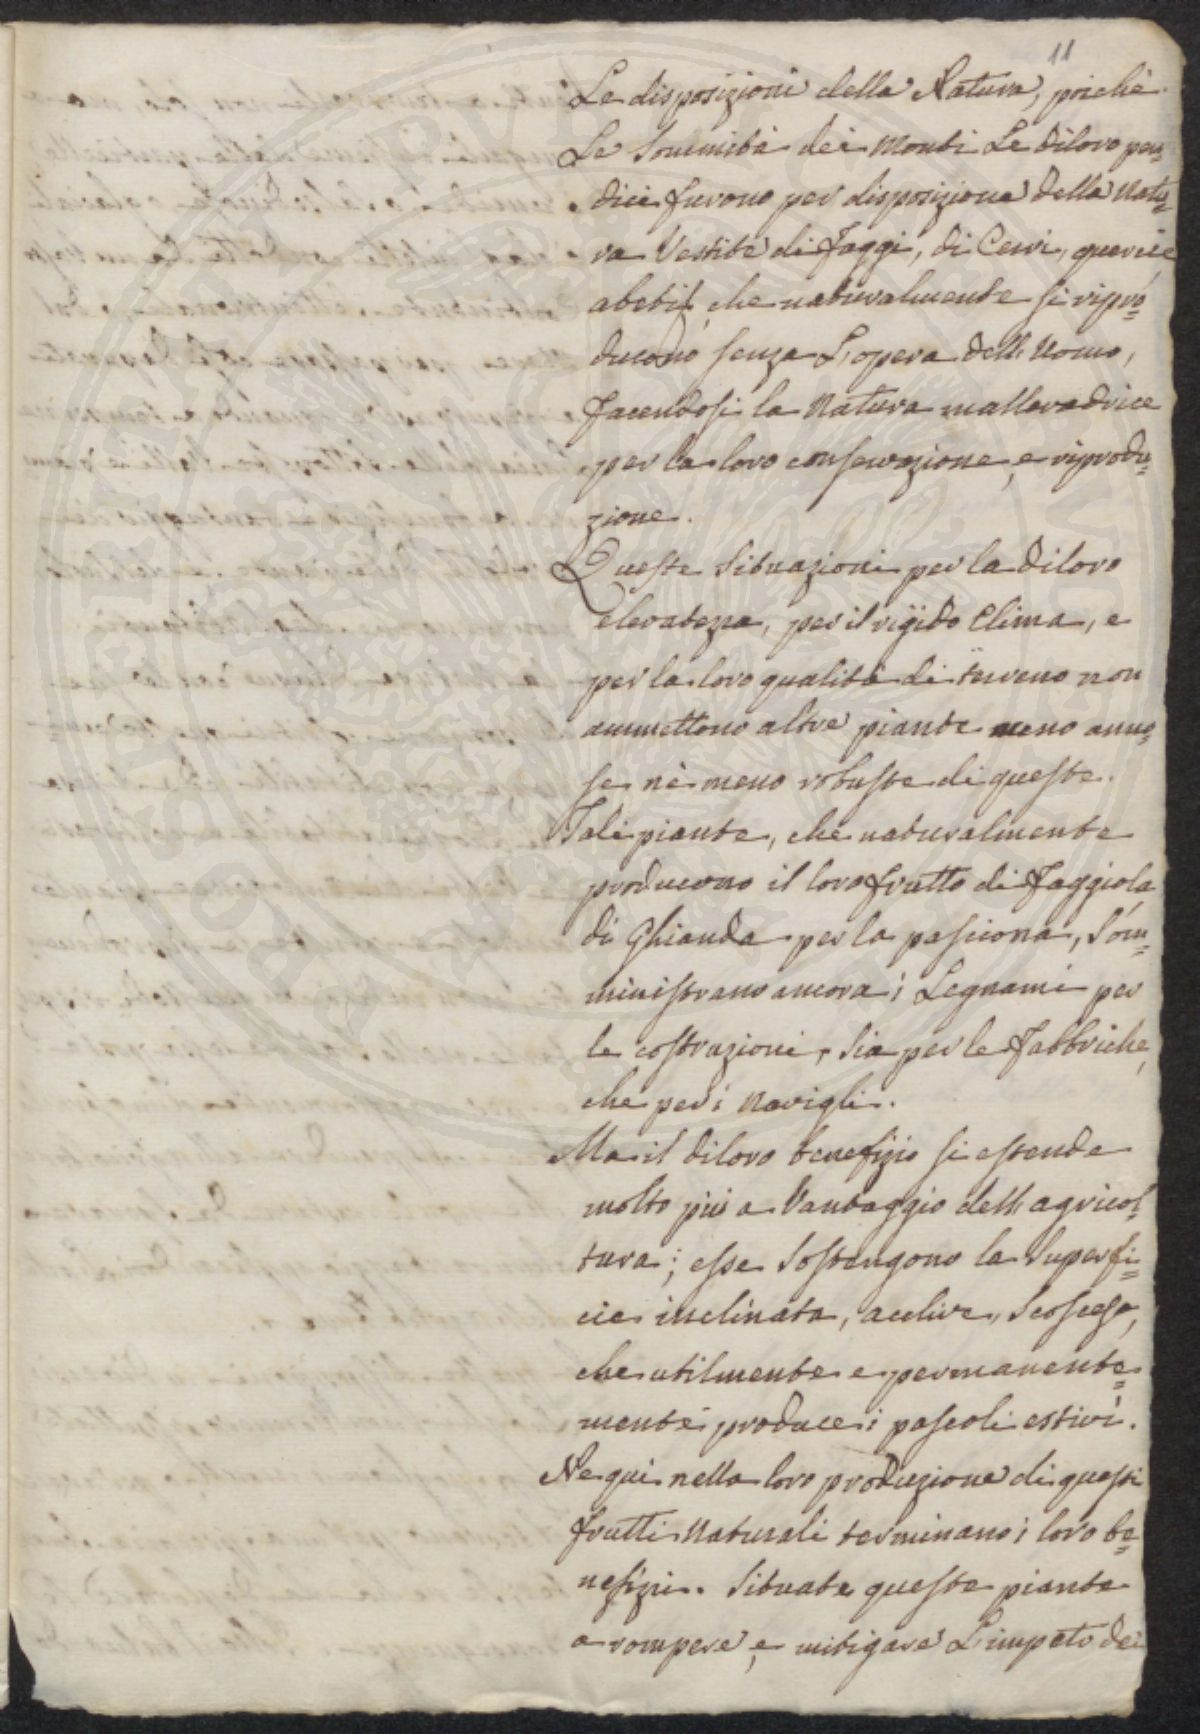 11
Le disposizioni della Natura, poichè
Le Sommità dei Monti Le diloro pen=
dici furono per disposizione della Natu=
ra Vestite di Faggi, di Cerri, quercie
abeti, che naturalmente si ripro=
ducono senza L'opera dell'Uomo,
facendosi la Natura mallevadrice
per la loro conservazione, e riprodu=
zione.
Queste Situazioni per la diloro
elevatezza, per il rigido Clima, e
per la loro qualità di terreno non
ammettono altre piante meno anno=
se nè meno robuste di queste.
Tali piante, che naturalmente
producono il loro frutto di Faggiola
di Ghianda per la pasciona, Som=
ministrano ancora i Legnami per
le costruzioni, Sia per le Fabbriche,
che per i Navigli.
Ma il diloro benefizio si estende
molto più a Vantaggio dell'agricol=
tura; esse Sostengono la Superfi=
cie inclinata, acclive, Scoscesa,
che utilmente e permanente=
mente produce i pascoli estivi.
Ne qui nella loro produzione di questi
frutti Naturali terminano i loro be=
nefizzi. Situate queste piante
a rompere, e mitigare L'impeto dei